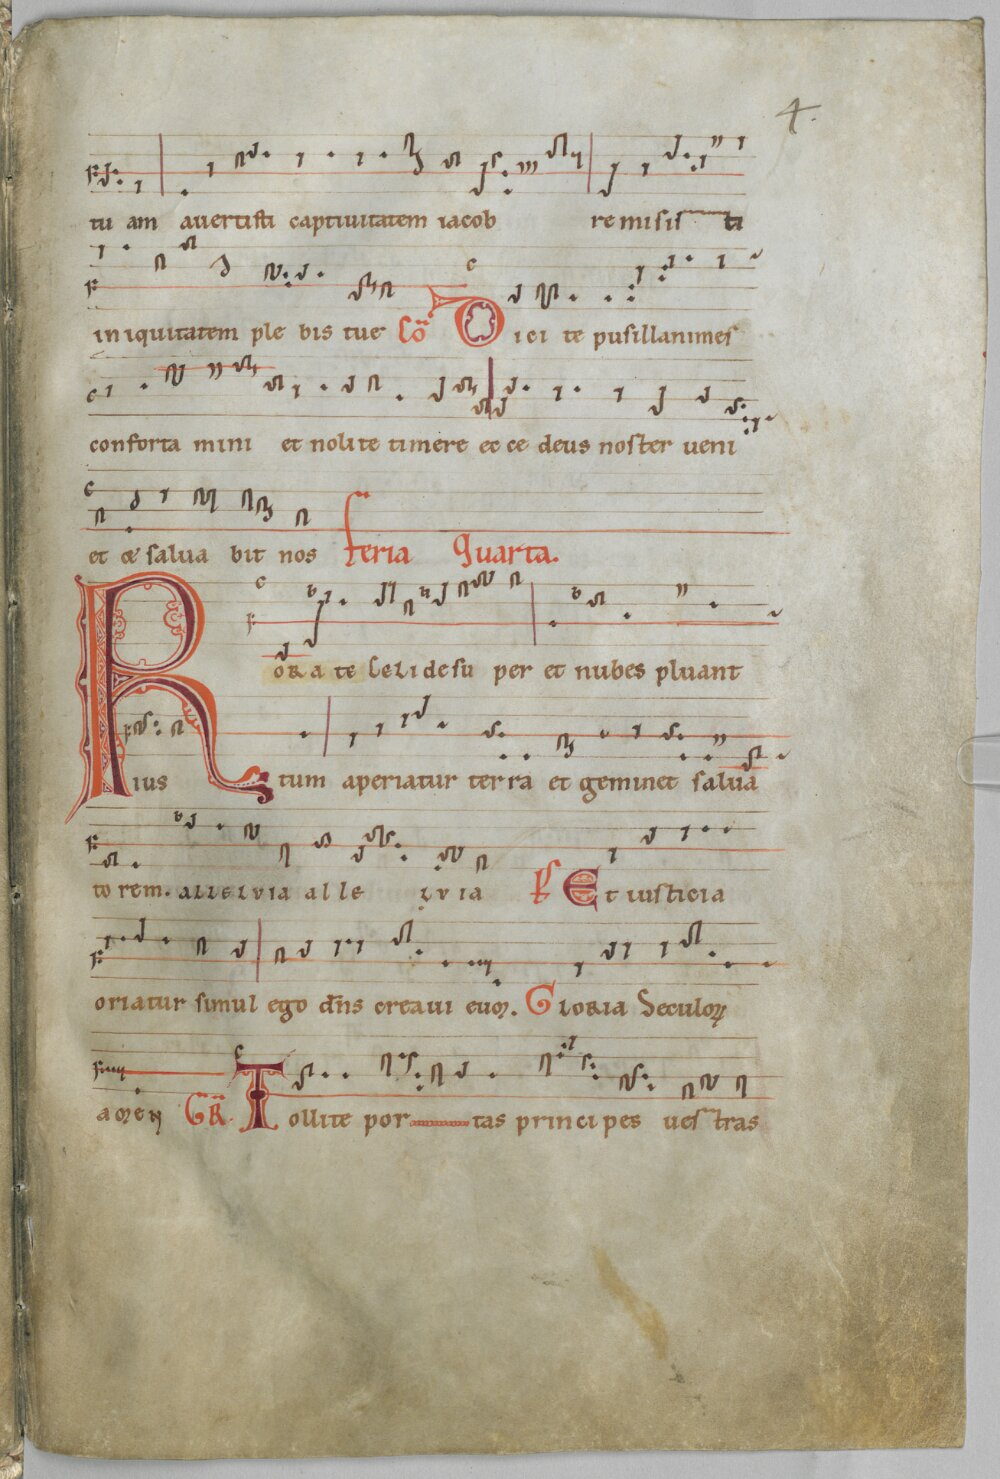 4.
tu am avertisti captivitatem iacob remisis ti
iniquitatem ple bis tue Co Dici te pusillanimes
conforta mini et nolite timere ec ce deus noster veni
et & salva bit nos feria Quarta.
Rorate celi desu per et nubes pluant
ius tum aperiatur terra et geminet salva
torem. allelvia alle lvia ℣ Et iusticia
oriatur simul ego dn̄s creavi eum. Gloria Seculoꝝ
amen GR. Tollite por tas principes ves tras